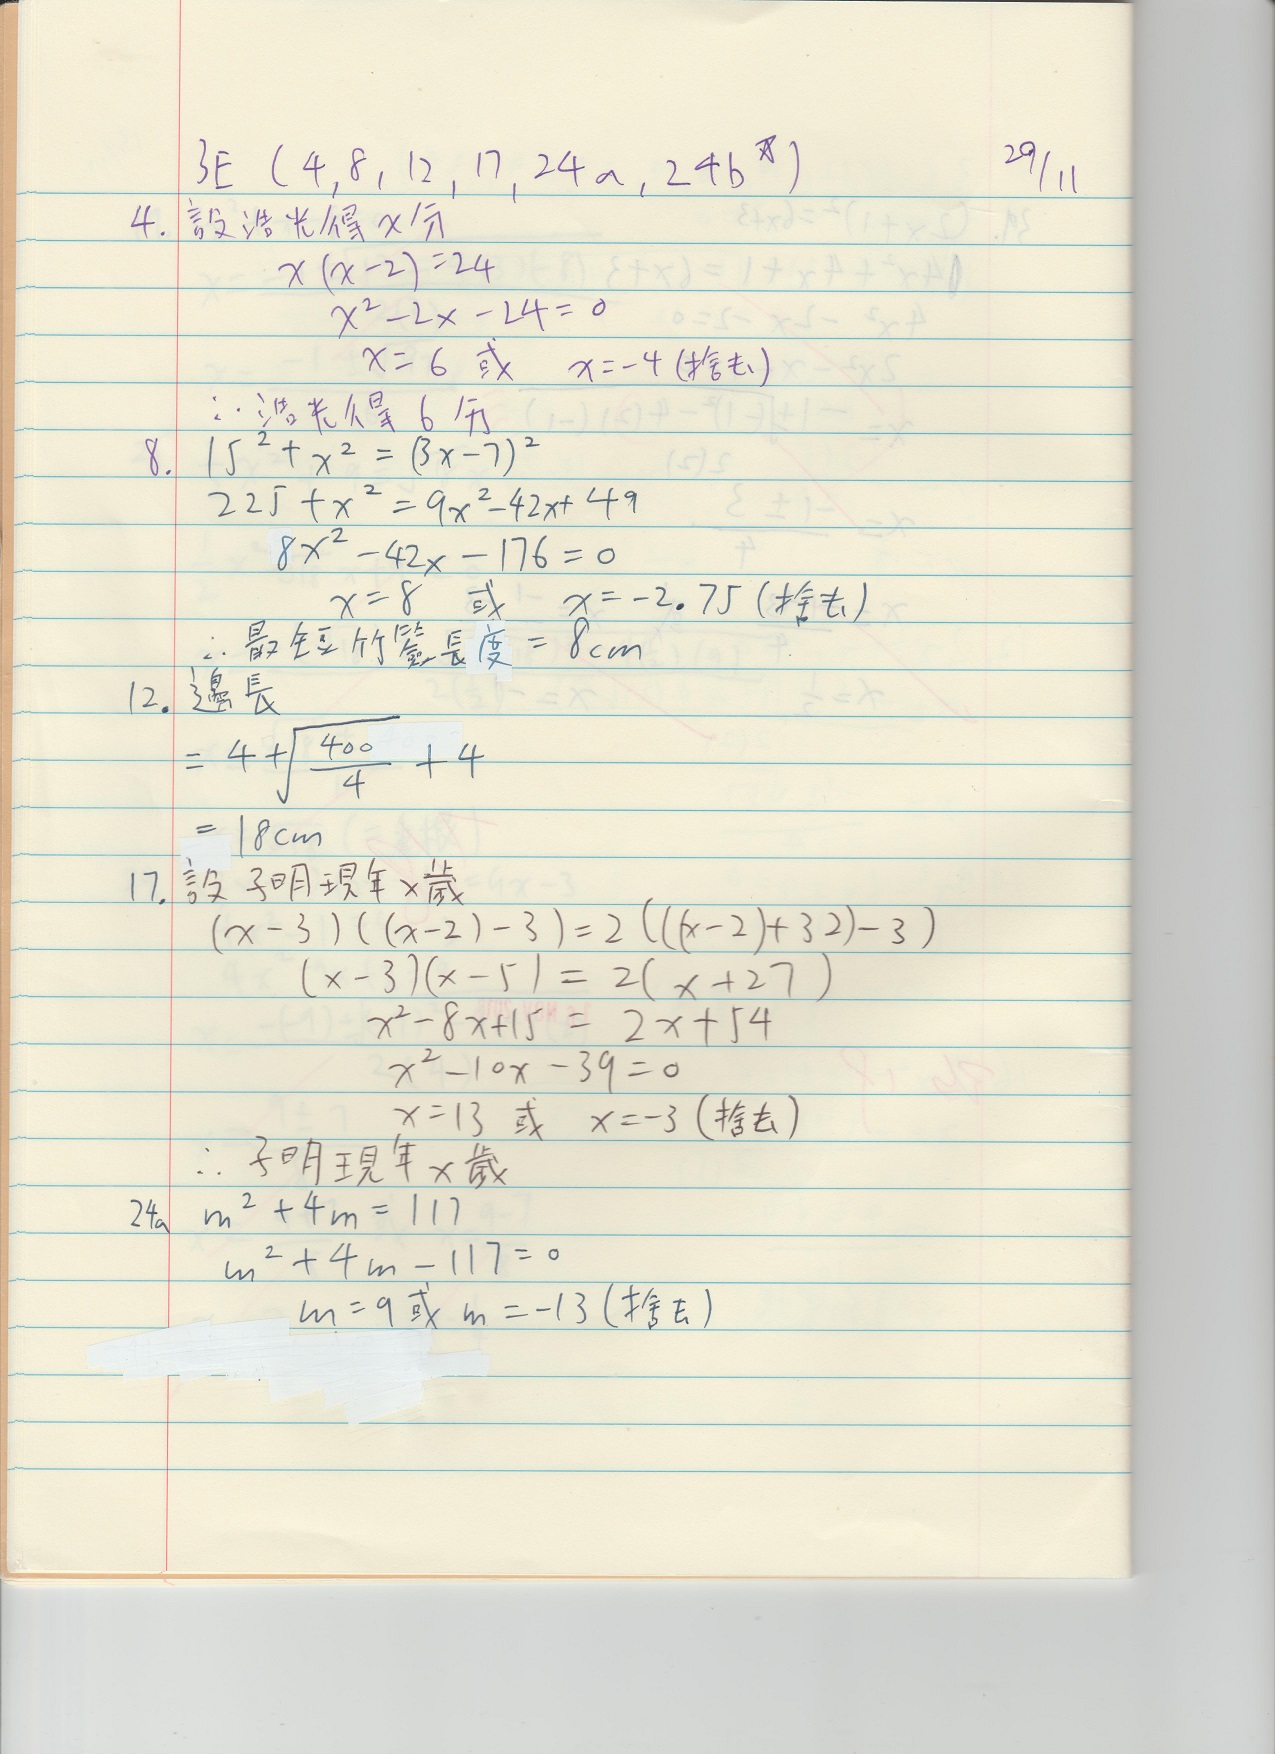 3E (4, 8, 12, 17, 24a, 24b*)
29/11
4. 設浩光得x分
x(x-2)=24
x²-2x-24=0
x=6 或 x=-4 (捨去)
∴浩光得6分
8. 15²+x²=(3x-7)²
225+x²=9x²-42x+49
8x²-42x-176=0
x=8 或 x=-2.75 (捨去)
∴最短竹簽長度=8cm
12. 邊長
=4+√(400/4)+4
=18cm
17. 設子明現年x歲
(x-3)((x-2)-3)=2(((x-2)+32)-3)
(x-3)(x-5)=2(x+27)
x²-8x+15=2x+54
x²-10x-39=0
x=13 或 x=-3 (捨去)
∴子明現年x歲
24a m²+4m=117
m²+4m-117=0
m=9 或 m=-13 (捨去)